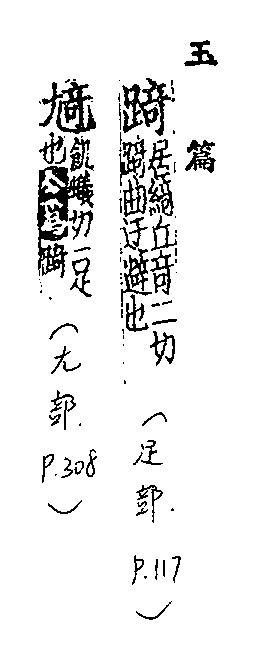 玉篇
踦
居綺丘奇二切
踦曲迂避也
(足部. P.117)
飢蟻切一足
也今爲踦
(尢部. P.308)